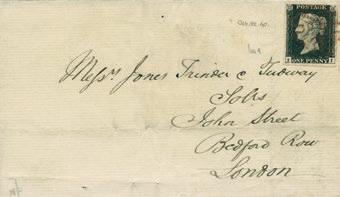 POSTAGE
ONE PENNY
Messrs Jones Trinder & Tudway
Solrs
John Street
Bedford Row
London